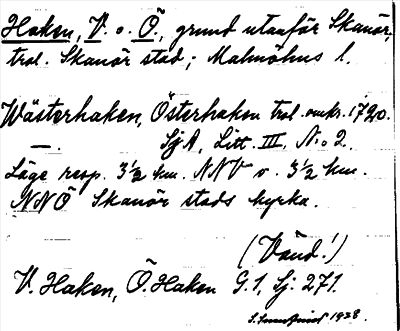 Haken, V. o. Ö., grund utanför Skanör,
trol. Skanör stad; Malmöhus l.
Wästerhaken, Österhaken trol. omkr. 1720.
—. SjA, Litt. III, No 2.
Läge resp. 3 1/2 km. NNV o. 3 1/2 km.
NNÖ Skanör stads kyrka.
(Vänd!)
V. Haken, Ö. Haken G.1, Sj: 271.
1928.